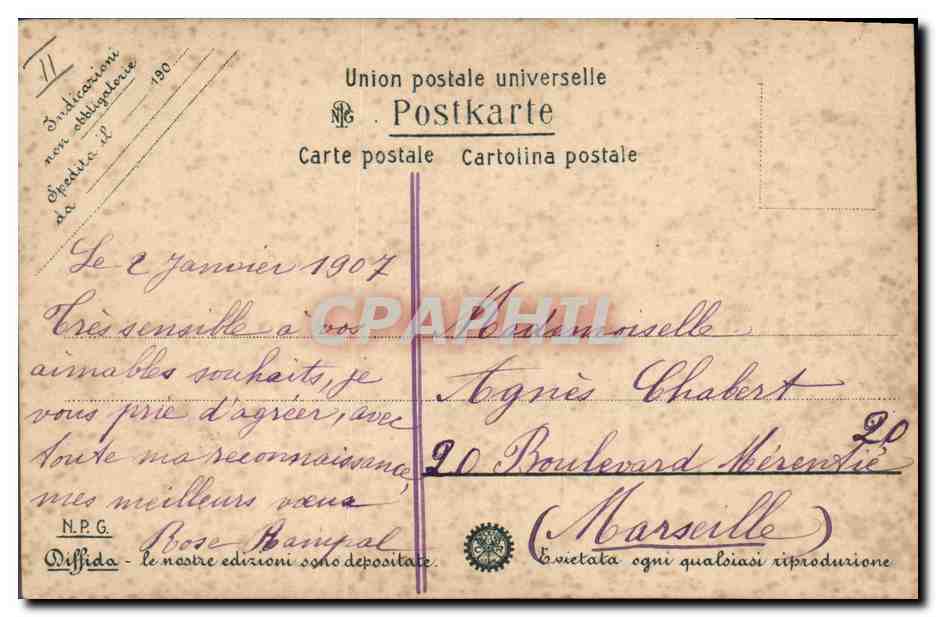 11
Indicazioni
non obbligatorie
Spedita il 190
da
Union postale universelle
NPG . Postkarte
Carte postale Cartolina postale
Le 2 Janvier 1907
Très sensible à vos
aimables souhaits, je
vous prie d'agréer, avec
toute ma reconnaissance,
mes meilleurs vœux
Rose Rampal
Mademoiselle
Agnès Chabert
20 Boulevard Mérentié 20
(Marseille)
CPAPHIL
N.P.G.
Diffida - le nostre edizioni sono depositate.
E vietata ogni qualsiasi riproduzione